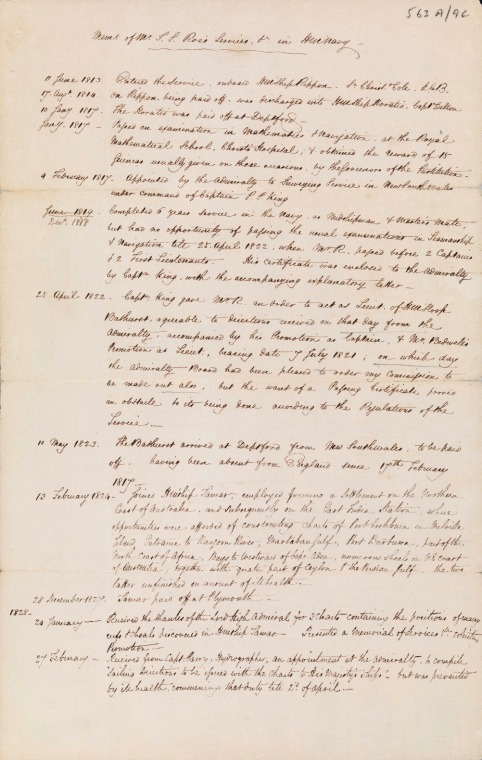 563 A/AC
Mem.º of Mr. J. S. Roe's Services, &c in H.M. Navy
11 June 1813. Entered the Service, onboard H.M. Ship Rippon. Sr. Christr. Cole, K.C.B.
17 Augt. 1814. on Rippon being paid off, was discharged into H.M. Ship Horatio, Captn Dillon
10 Jany. 1817. The Horatio was paid off at Deptford
Jany. 1817 Passed an examination in Mathematics & Navigation, at the Royal
Mathematical School, Christ's Hospital, & obtained the reward of 15
Guineas usually given on those occasions, by the Governors of the Institution.
4 February 1817. Appointed by the Admiralty to Surveying Service in New South Wales
under command of Captain P. P. King
June 1819 Completed 6 years service in the Navy, as Midshipman & Master's Mate,
Decr. 1818 but had no opportunity of passing the usual examinations in Seamanship
& Navigation till 25 April 1822, when Mr. R. passed before 2 Captains
& 2 First Lieutenants. His Certificate was enclosed to the Admiralty
by Captn. King, with the accompanying explanatory letter
25 April 1822. Captn. King gave Mr. R. an order to act as Lieut. of H.M. Sloop
Bathurst, agreeable to directions received on that day from the
Admiralty, accompanied by his Promotion as Captain, & Mr. Bedwell's
Promotion as Lieut., bearing date 7 July 1821; on which day
the Admiralty Board had been pleased to order my Commission to
be made out also, but the want of a Passing Certificate proved
an obstacle to its being done according to the Regulations of the
Service.
10 May 1823. The Bathurst arrived at Deptford from New South Wales, to be paid
off, having been absent from England since 17th February
1817
13 February 1824 Joined H.M. Ship Tamar, employed forming a Settlement on the Northern
Coast of Australia, and subsequently on the East India Station, where
opportunities were afforded of constructing charts of Port Cockburn in Melville
Island, Entrance to Rangoon River, Martaban Gulf, Port Birbown, part of the
North Coast of Africa, Bays to Westward of Cape Aden, numerous shoals on N.E. coast
of Australia, together with greater part of Ceylon & the Persian Gulf. the two
latter unfinished on account of ill health.
28 December 1827. Tamar paid off at Plymouth
1828
24 January Received the thanks of the Lord High Admiral for 3 charts containing the positions of many
reefs & shoals discovered in H.M. Ship Tamar. Presented a Memorial of Services &c soliciting
Promotion
27 February Received from Captn. Parry, Hydrographer, an appointment at the Admiralty, to compile
Sailing Directions to be issued with the charts to His Majesty's Ships but was prevented
by ill health, commencing that duty till 2d. of April.